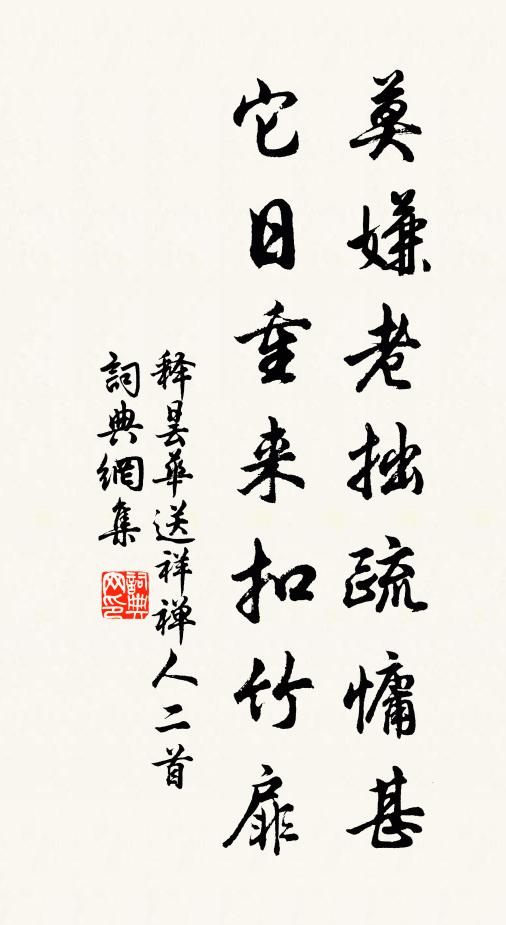 莫嫌老拙疏慵甚
它日重来扣竹扉
释昙华送祥禅人二首
詞典網集
詞典网印